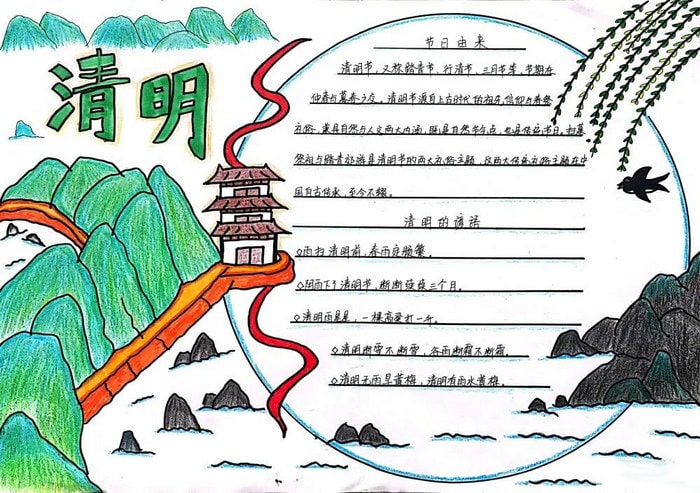 清明
节日由来
清明节，又称踏青节、行清节、三月节等，节期在
仲春与暮春之交。清明节源自上古时代的祖先信仰与春祭
礼俗，兼具自然与人文两大内涵，既是自然节气点，也是传统节日，扫墓
祭祖与踏青郊游是清明节的两大礼俗主题，这两大传统礼俗主题在中
国自古传承，至今不辍。
清明的谚语
◇雨打清明前，春雨定频繁。
◇阴雨下了清明节，断断续续三个月。
◇清明雨星星，一棵高粱打一升。
◇清明断雪不断雪，谷雨断霜不断霜。
◇清明无雨旱黄梅，清明有雨水黄梅。